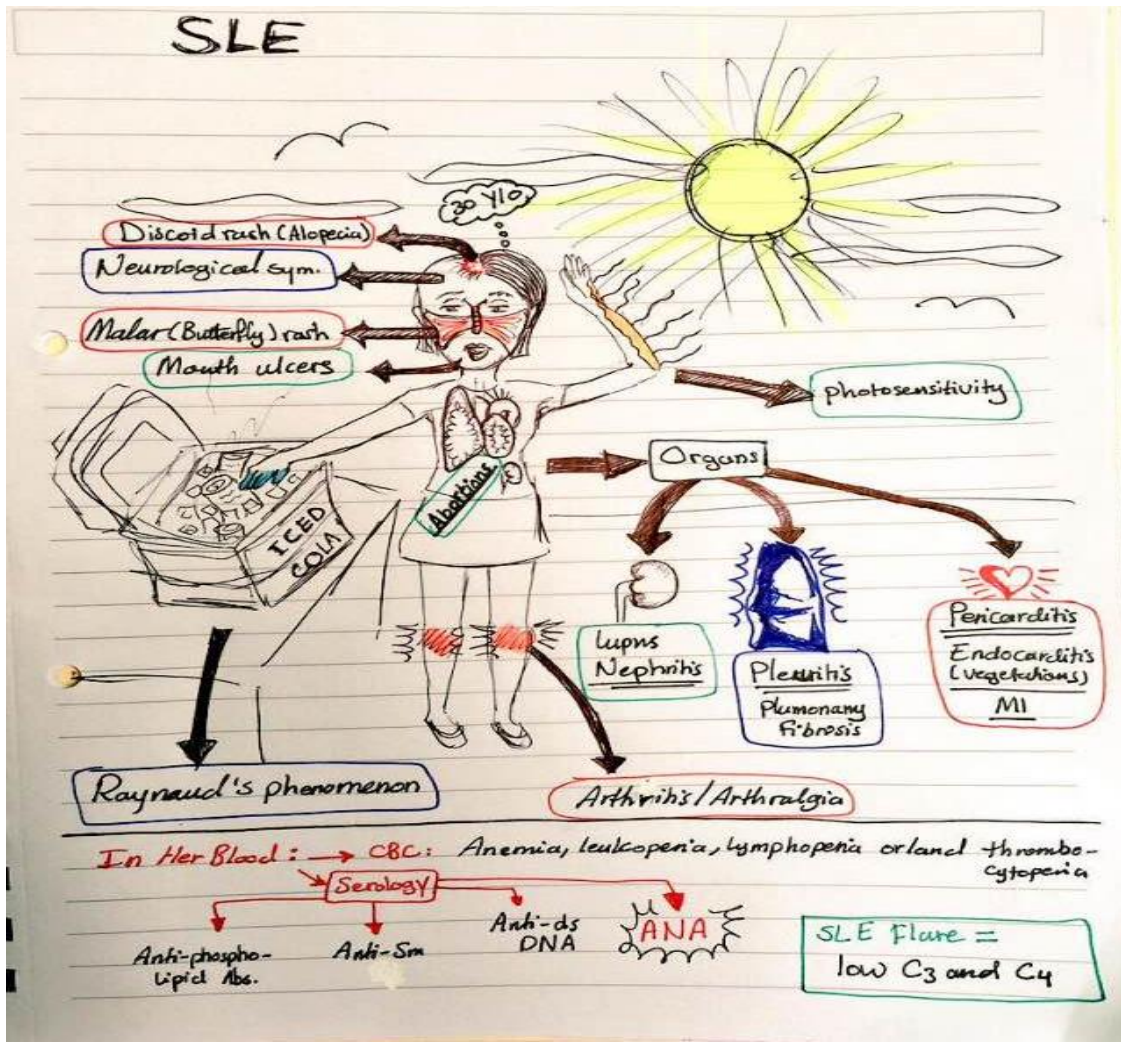 SLE
30 Y/o
Discoid rash (Alopecia)
Neurological sym.
Malar (Butterfly) rash
Mouth ulcers
photosensitivity
Organs
Abortions
ICED
COLA
Lupus
Nephritis
Pleuritis
Plumonary
Fibrosis
Pericarditis
Endocarditis
(vegetations)
MI
Raynaud's phenomenon
Arthritis/Arthralgia
In Her Blood: → CBC: Anemia, leukopenia, lymphopenia or/and thrombo-
cytopenia
Serology
Anti-phospho-
Lipid Abs.
Anti-Sm
Anti-ds
DNA
ANA
SLE Flare =
low C3 and C4